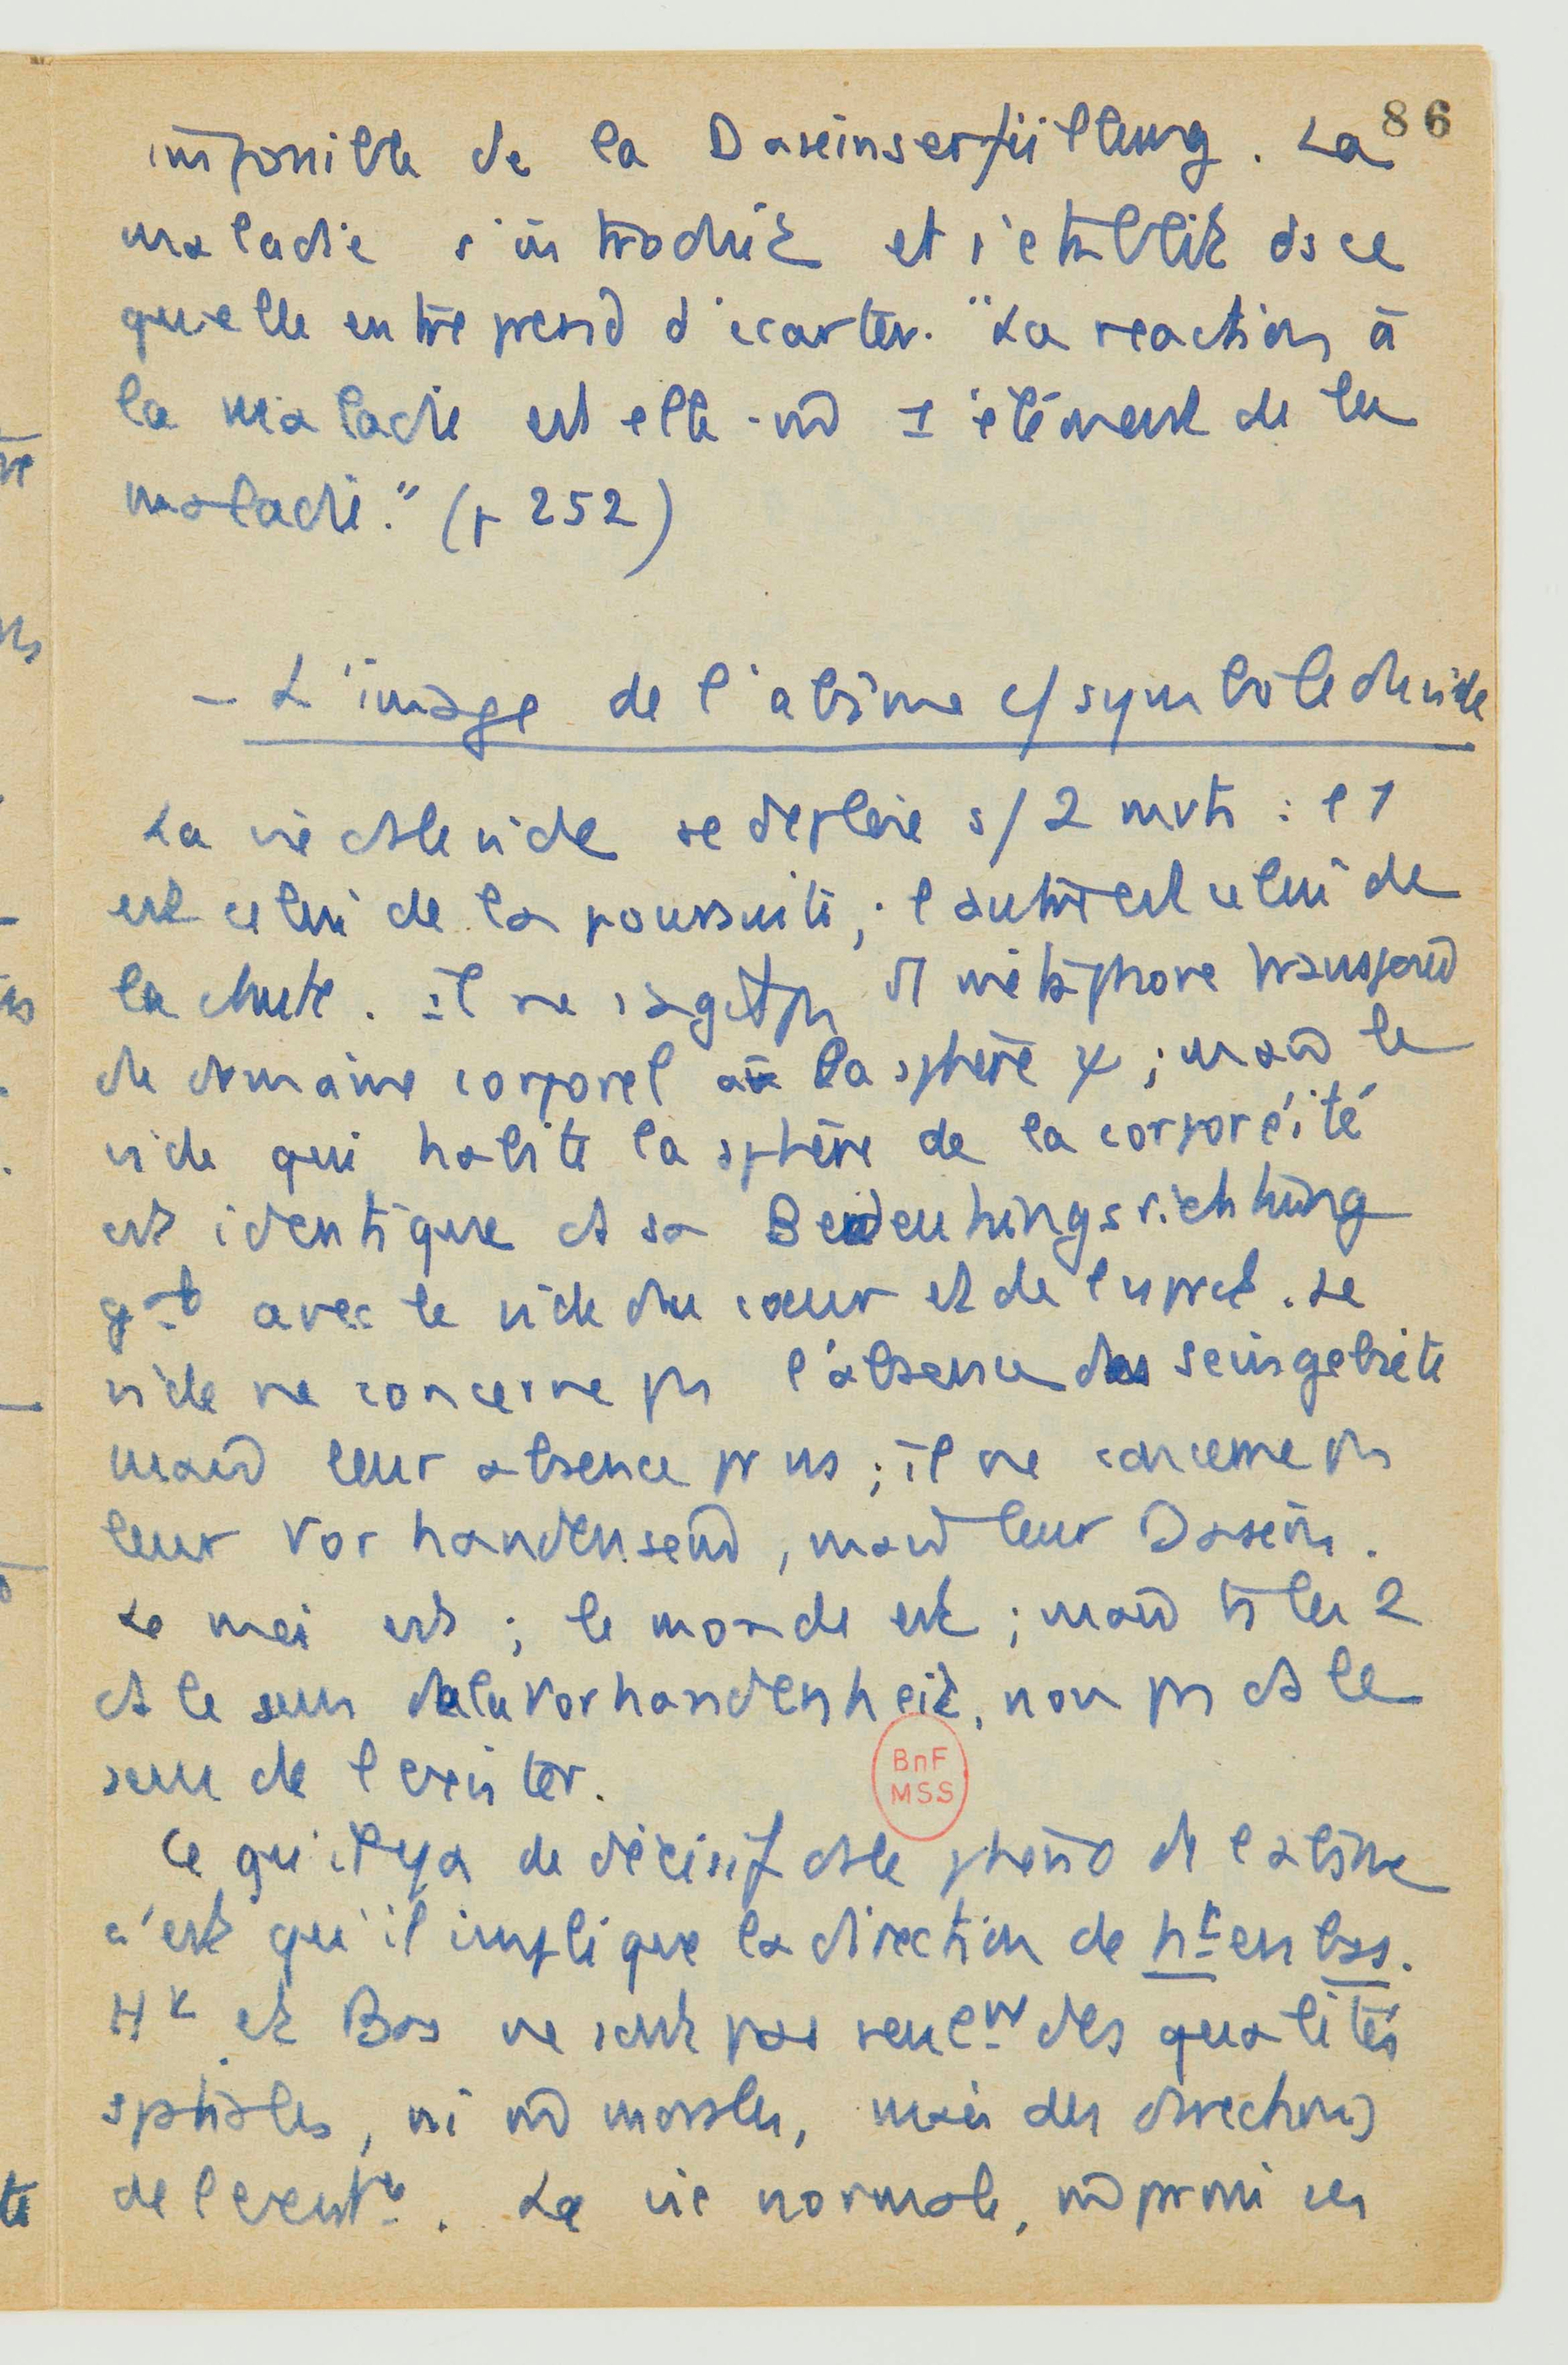 86
impossible de la Daseinserfüllung. La
maladie s'introduit et s'etablit ds ce
qu'elle entreprend d'ecarter. "La reaction à
la maladie est elle-m̂ 1 élément de la
maladie." (p 252)
- L'image de l'abîme c/ symbole du vide
La vie ds le vide se deploie s/ 2 mvts : l'1
est celui de la poursuite ; l'autre est celui de
la chute. Il ne s'agit ps d'1 métaphore transposée
du domaine corporel à la sphère ψ ; mais le
vide qui habite la sphère de la corporéité
est identique ds sa Bedeutungsrichtung
gale avec le vide du cœur et de l'esprit. Le
vide ne concerne ps l'absence des Seinsgebiete
mais leur absence pr ns ; il ne concerne ps
leur Vorhandensein, mais leur Dasein.
Le moi est ; le monde est ; mais ts les 2
ds le sens de la Vorhandenheit, non ps ds le
sens de l'exister.
Ce qu'il y a de décisif ds le phéno de l'abîme
c'est qu'il implique la direction de ht en bas.
Ht et Bas ne sont pas seulmt des qualités
sptiales, ni m̂ morales, mais des directions
de l'existce. La vie normale, m̂ parmi ses
BnF
MSS